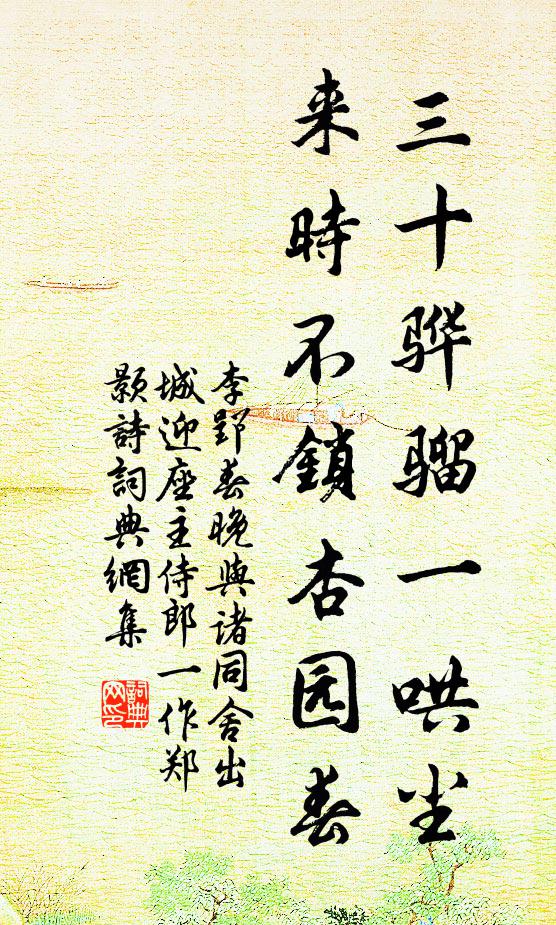 三十骅骝一哄尘
来時不鎖杏园春
李郢春晚與诸同舍出
城迎座主侍郎一作郑
颢詩詞典網集
詞典
网印